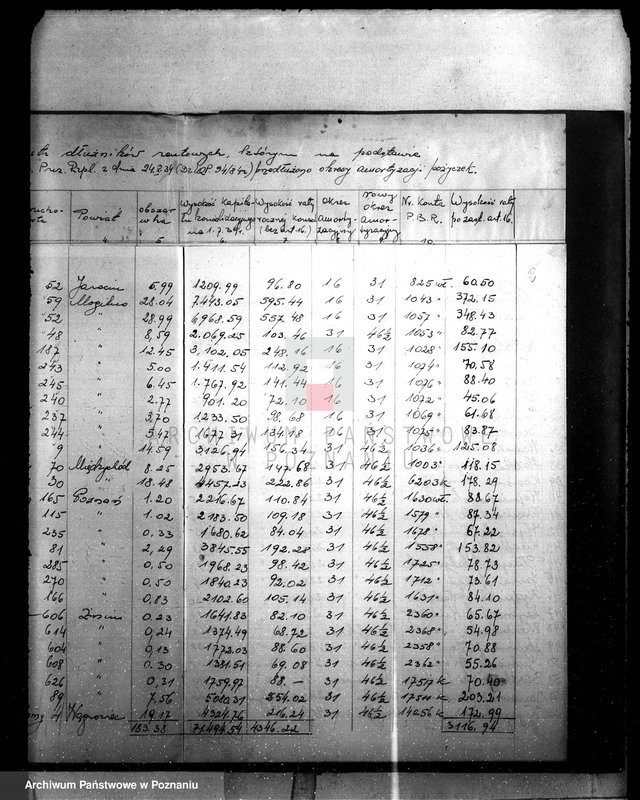 dłużników rentowych, którym na podstawie
Roz. Rzpl. z dnia 24.X.34 (Dz.U.RP 94/841) przedłużono okresy amortyzacji pożyczek.
Powiat obszar w ha Wysokość kapitału konsolidacyjnego na 1.7.39r. Wysokość raty rocznej konw. (bez art.16.) Okres amortyzacyjny Nowy okres amortyzacyjny Nr. konta P.B.R. Wysokość raty po zast. art. 16.
4 5 6 7 8 9 10
52 Jarocin 5.99 1209.99 96.80 16 31 825 wł. 60.50
59 Mogilno 28.04 7443.05 595.44 16 31 1043 " 372.15
52 " 28.99 6968.59 557.48 16 31 1057 " 348.43
48 " 8,59 2.069.25 103.46 31 46½ 1053 " 82.77
187 " 12.45 3,102.05 248.16 16 31 1028 " 155.10
243 " 5.00 1.411.54 112.92 16 31 1074 " 70.58
245 " 6.45 1.767.92 141.44 16 31 1076 " 88.40
240 " 2.77 901.20 72.10 16 31 1072 " 45.06
237 " 3,70 1233.50 98.68 16 31 1069 " 61.68
244 " 5.47 1677.31 134.18 16 31 1075 " 83.87
9 " 14.59 3126.94 156.34 31 46½ 1036 " 125.08
70 Międzychód 8.25 2953.67 147.68 31 46½ 1003 " 118.15
30 " 18.48 4457.23 222.86 31 46½ 6203 k 178.29
165 Poznań 1.20 2216.67 110.84 31 46½ 1630 wł. 88.67
115 " 1.02 2183.50 109.18 31 46½ 1579 " 87.34
235 " 0,33 1680.62 84.04 31 46½ 1678 " 67.22
81 " 2,29 3845.55 192.28 31 46½ 1558 " 153.82
285 " 0,50 1968.23 98.42 31 46½ 1725 " 78.73
270 " 0,50 1840.23 92.02 31 46½ 1712 " 73.61
166 " 0,83 2102.60 105.14 31 46½ 1631 " 84.10
606 Żnin 0.23 1641.83 82.10 31 46½ 2360 " 65.67
614 " 0,24 1374.49 68.72 31 46½ 2368 " 54.98
604 " 0,13 1772.03 88.60 31 46½ 2358 " 70.88
608 " 0.30 1381.51 69.08 31 46½ 2362 " 55.26
626 " 0,31 1759.97 88.— 31 46½ 17517 k 70.40
89 " 7.56 5080.31 254.02 31 46½ 17511 k 203.21
4 Wągrowiec 19.17 4324.76 216.24 31 46½ 14256 k 172.99
183.38 71494.54 4346.22 3116.94
ARCHIWUM PAŃSTWOWE
W POZNANIU
Archiwum Państwowe w Poznaniu
Archiwum Państwowe w Poznaniu